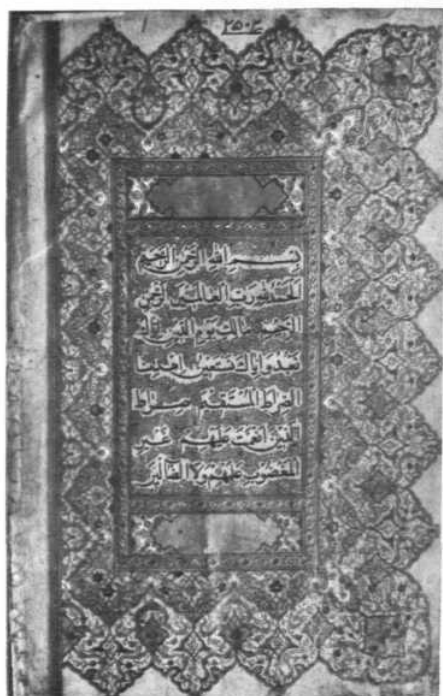 ٢٥٠٤
بسم الله الرحمن الرحيم
الحمد لله رب العالمين الرحمن
الرحيم مالك يوم الدين اياك
نعبد واياك نستعين اهدنا
الصراط المستقيم صراط
الذين انعمت عليهم غير
المغضوب عليهم ولا الضالين